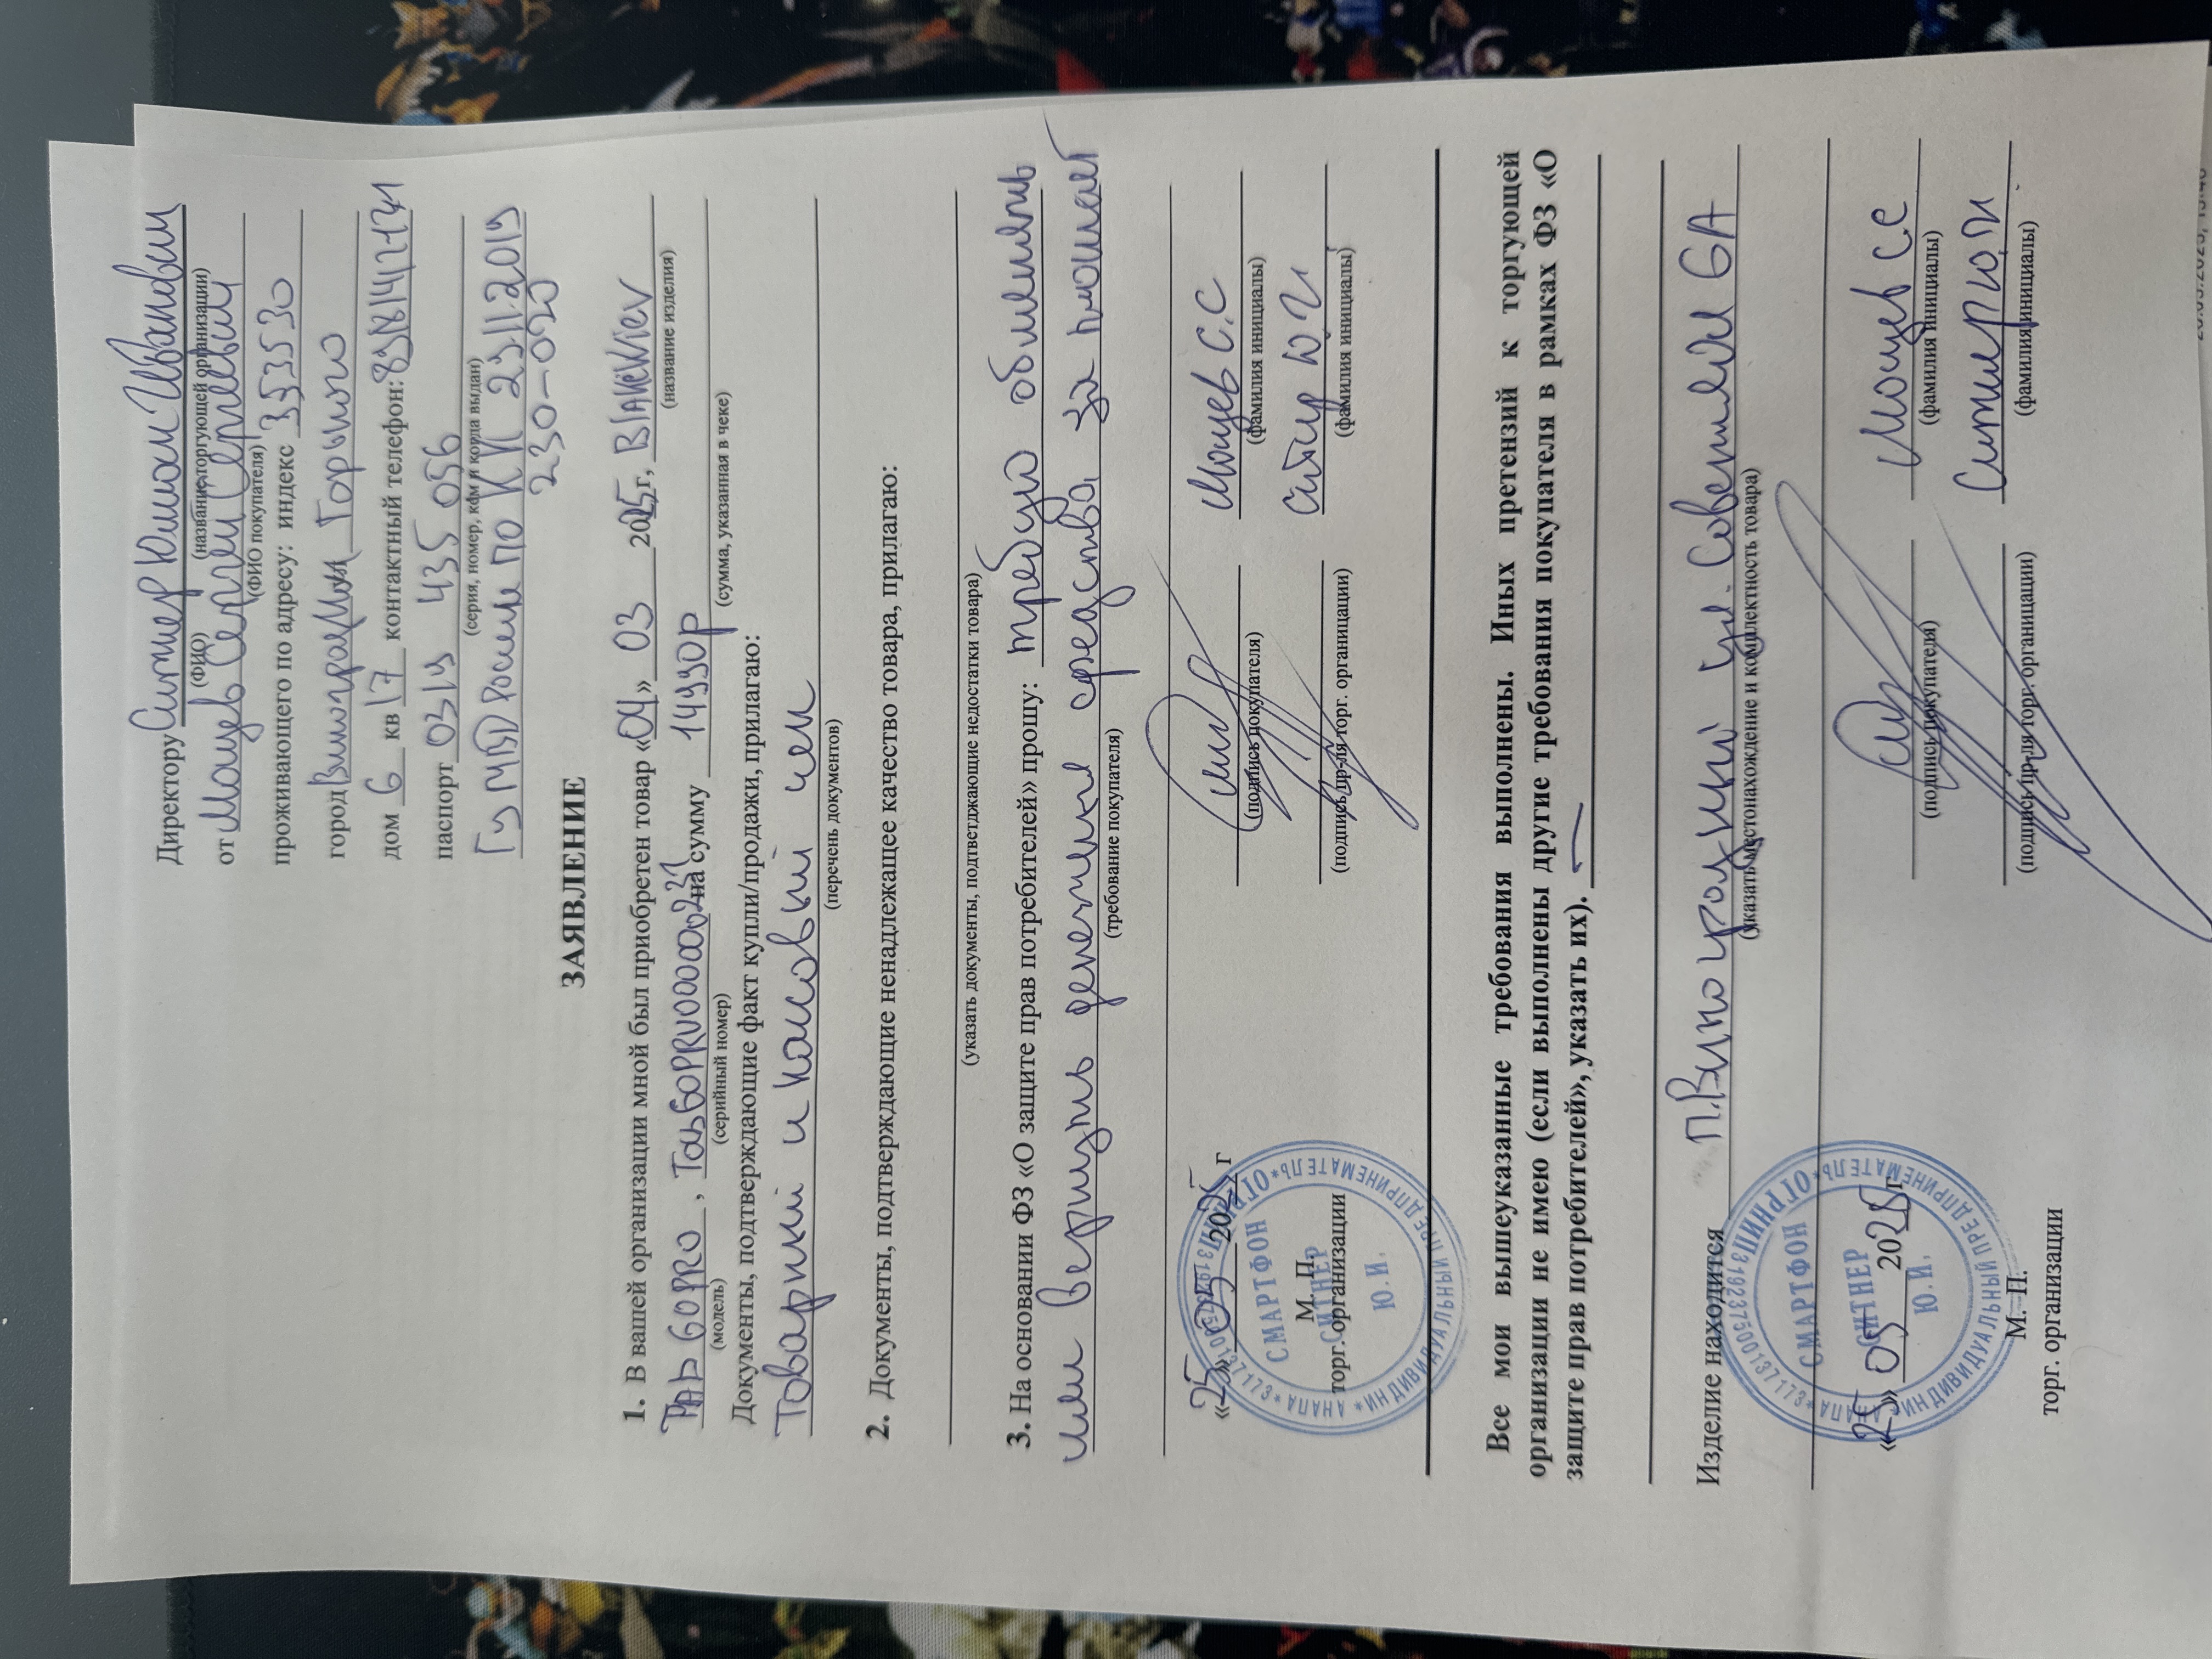 Директору Ситнер Юлиан Иванович
(ФИО) (название торгующей организации)
от Моцев Сергей Сергеевич
(ФИО покупателя)
проживающего по адресу: индекс 353530
город Виноградный Горького
дом 6 кв 17 контактный телефон:
паспорт 0319 435 056
(серия, номер, кем и когда выдан)
ГУ МВД России по КК 29.11.2019
230-020
ЗАЯВЛЕНИЕ
1. В вашей организации мной был приобретен товар «04» 03 2025г, BlAckView
(название изделия)
TAb 60PRO , Tab60PRU0000023 на сумму 14990р
(модель) (серийный номер) (сумма, указанная в чеке)
Документы, подтверждающие факт купли/продажи, прилагаю:
Товарный и кассовый чек
(перечень документов)
2. Документы, подтверждающие ненадлежащее качество товара, прилагаю:
(указать документы, подтветджающие недостатки товара)
3. На основании ФЗ «О защите прав потребителей» прошу: требую обменять
или вернуть денежные средства за планшет
(требование покупателя)
Моцев С.С
(подпись покупателя) (фамилия инициалы)
Ситнер Ю И
(подпись пр-ля торг. органиции) (фамилия инициалы)
«25» 05 2025 г
М. П.
торг. организации
* ИНДИВИДУАЛЬНЫЙ ПРЕДПРИНИМАТЕЛЬ * ОГРНИП 319237500137173 * АНАПА
СМАРТФОН
СИТНЕР
Ю.И.
Все мои вышеуказанные требования выполнены. Иных претензий к торгующей
организации не имею (если выполнены другие требования покупателя в рамках ФЗ «О
защите прав потребителей», указать их).
Изделие находится п.Виноградный ул. Советская 6А
(указать местонахождение и комплектность товара)
Моцев С.С
(подпись покупателя) (фамилия инициалы)
Ситнер Ю.И
(подпись пр-ля торг. организации) (фамилия инициалы)
«25» 05 2025 г
М. П.
торг. организации
* ИНДИВИДУАЛЬНЫЙ ПРЕДПРИНИМАТЕЛЬ * ОГРНИП 319237500137173 * АНАПА
СМАРТФОН
СИТНЕР
Ю.И.